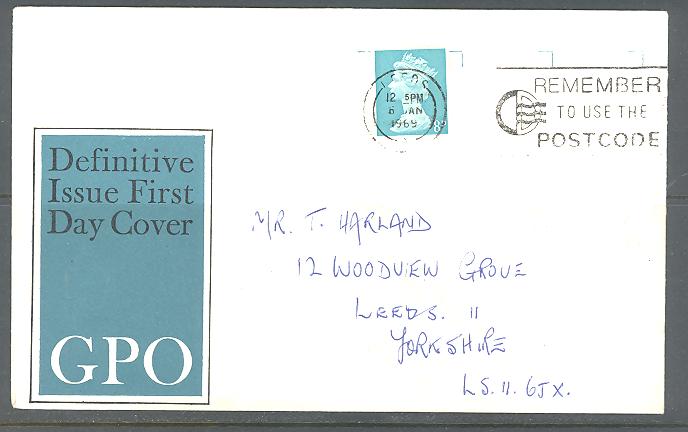 LEEDS
12 5PM
6 JAN
1969
8D
REMEMBER
TO USE THE
POSTCODE
Definitive
Issue First
Day Cover
GPO
MR. T. HARLAND
12 WOODVIEW GROVE
LEEDS. 11
YORKSHIRE
LS. 11. 6JX.